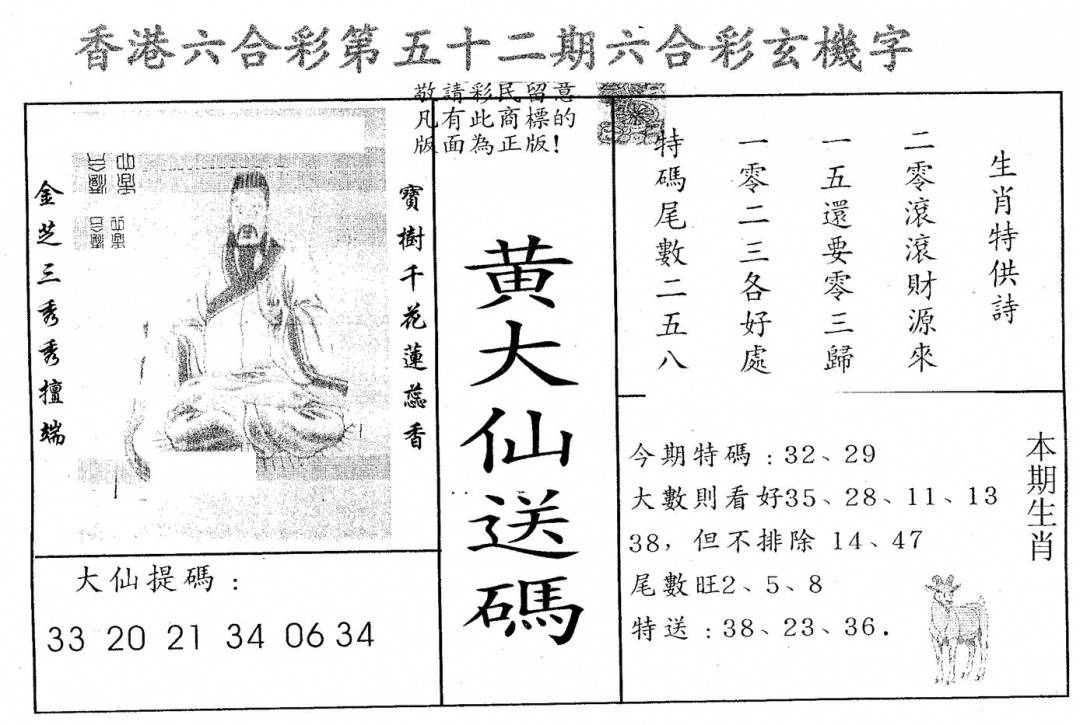 香港六合彩第五十二期六合彩玄機字
敬請彩民留意
凡有此商標的
版面為正版!
金芝三秀秀擅端
寶樹千花蓮蕊香
大仙提碼：
33 20 21 34 06 34
黄大仙送碼
生肖特供詩
二零滾滾財源來
一五還要零三歸
一零二三各好處
特碼尾數二五八
本期生肖
今期特碼：32、29
大數則看好35、28、11、13
38，但不排除 14、47
尾數旺2、5、8
特送：38、23、36.